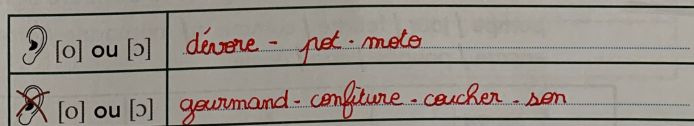 [o] ou [ɔ] dévore - pot - moto
[o] ou [ɔ] gourmand - confiture - coucher - son